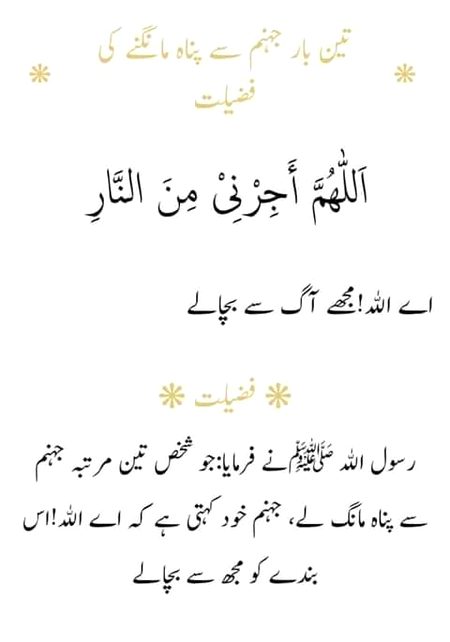 تین بار جہنم سے پناہ مانگنے کی
فضیلت
اَللّٰهُمَّ أَجِرْنِیْ مِنَ النَّارِ
اے اللہ!مجھے آگ سے بچالے
فضیلت
رسول اللہ ﷺنے فرمایا:جو شخص تین مرتبہ جہنم
سے پناہ مانگ لے، جہنم خود کہتی ہے کہ اے اللہ!اس
بندے کو مجھ سے بچالے